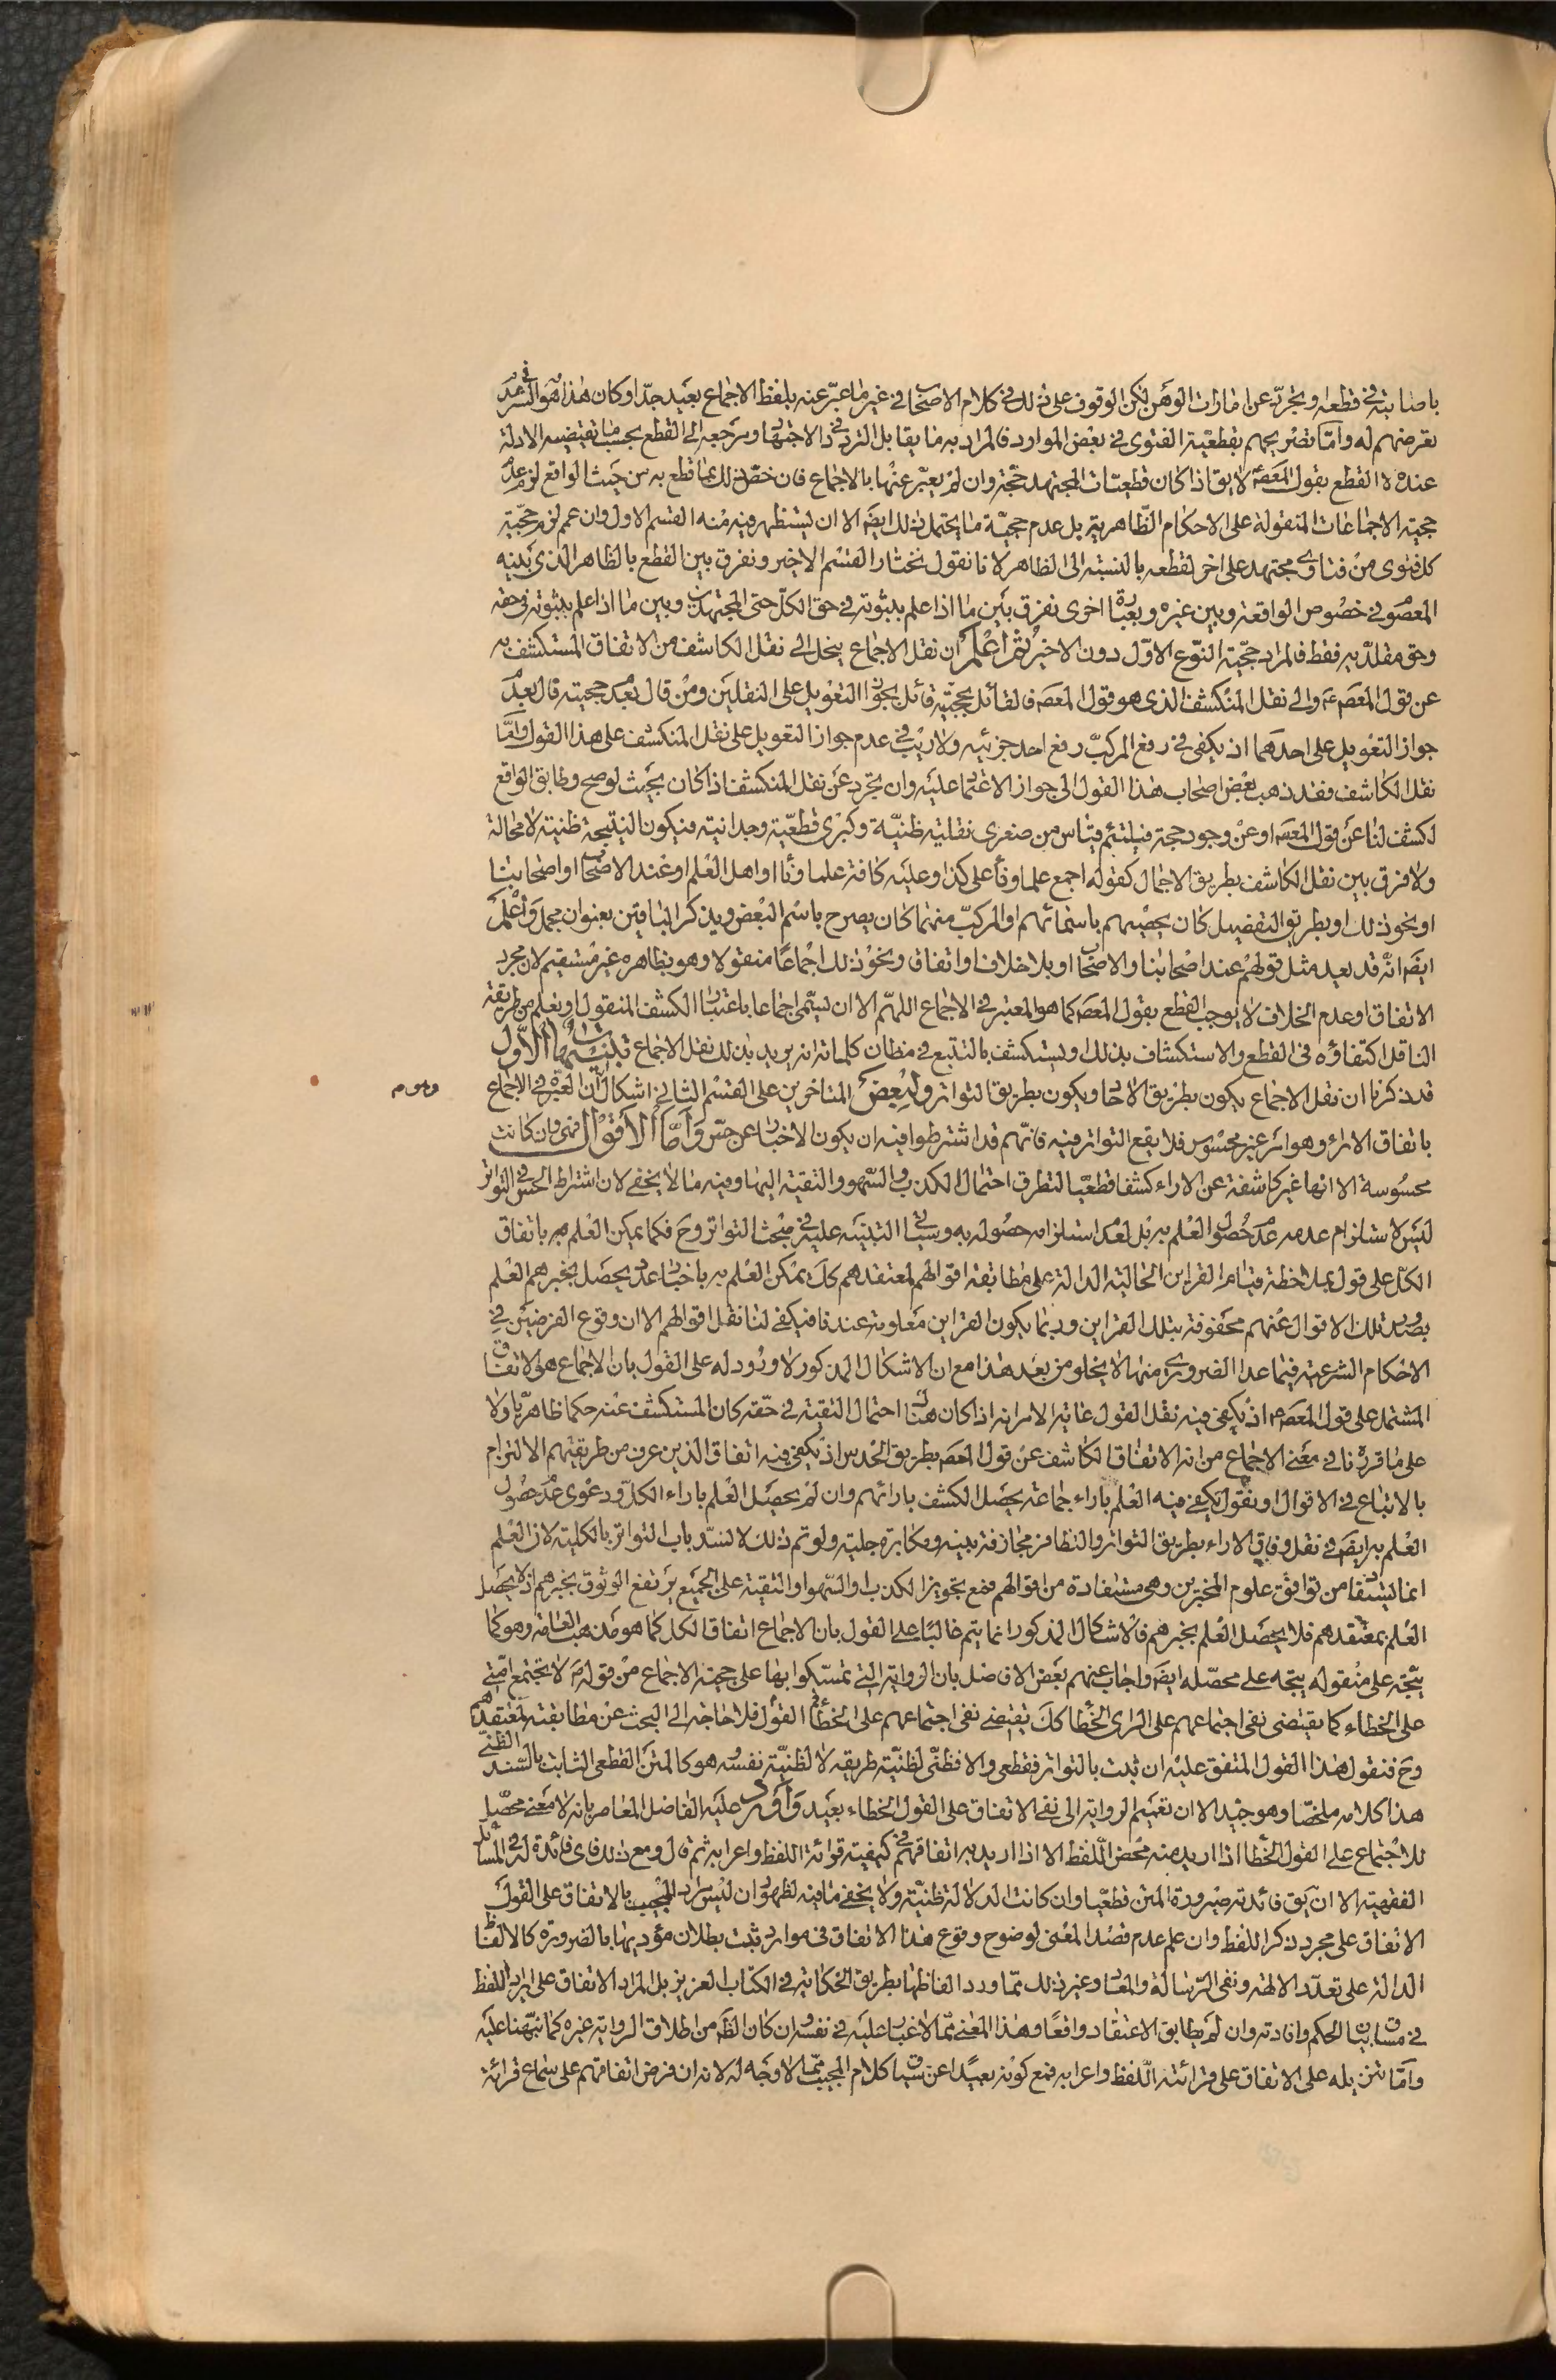 باصابته في قطعه وبتجرّده عن امارات الوهن لكن الوقوف على ذلك في كلام الاصحاب في غير ما عبّر عنه بلفظ الاجماع بعيد جدّا وكان هذا هو السّر في عدم
تعرضهم له وامّا تصريحهم بقطعيّة الفتوى في بعض الموارد فالمراد به ما يقابل التردد في الاجتهاد ومرجعه الى القطع بحسب ما تقتضيه الادلة
عنده لا القطع بقول المعصوم لا يق اذا كان قطعيّات المجتهد حجّة وان لم يعبّر عنها بالاجماع فان خصّ ذلك بما قطع به من حيث الواقع لزم عدم
حجية الاجماعات المنقولة على الاحكام الظّاهريّة بل عدم حجيّة ما يحتمل ذلك ايضا الا ان يستظهر فيه منه القسم الاول وان عمم لزم حجّية
كل فتوى من فتاوى مجتهد على اخر لقطعه بالنسبة الى الظاهر لانا نقول نختار القسم الاخير ونفرق بين القطع بالظاهر الذي يدينه
المعصوم في خصوص الواقعة وبين غيره وبعبارة اخرى نفرق بين ما اذا علم بثبوته في حق الكلّ حتى المجتهدين وبين ما اذا علم بثبوته في حقه
وحق مقلّديه فقط فالمراد حجّية النوّع الاوّل دون الاخير ثمّ اعلم ان نقل الاجماع ينحل الى نقل الكاشف من الاتفاق المستكشف به
عن قول المعصم ع والى نقل المنكشف الذى هو قول المعصم فالقائل بحجّيته قائل بجواز التعويل على النقلين ومن قال بعدم حجيته قال بعدم
جواز التعويل على احدهما اذ يكفي في رفع المركبّ رفع احد جزئيه ولا ريب في عدم جواز التعويل على نقل المنكشف على هذا القول وامّا
نقل الكاشف فقد ذهب بعض اصحاب هذا القول الى جواز الاعتماد عليه وان تجرد عن نقل المنكشف اذا كان بحيث لو صح وطابق الواقع
لكشف لنا عن قول المعصم او عن وجود حجة فيلتئم قياس من صغرى نقليّة ظنيّة وكبرى قطعيّة وجدانيّة فيكون النتيجة ظنيّة لا محالة
ولا فرق بين نقل الكاشف بطريق الاجمال كقوله اجمع علماؤنا على كذا وعليه كافة علماؤنا او اهل العلم او عند الاصحاب او اصحابنا
او نحو ذلك او بطريق التفصيل كان يحصيهم باسمائهم او المركبّ منهما كان يصرح باسم البعض ويذكر الباقين بعنوان مجمل واعلم
ايضا انّه قد يعد مثل قولهم عند اصحابنا والاصحاب او بلا خلاف او اتفاق ونحو ذلك اجماعًا منقولا وهو بظاهره غير مستقيم لان مجرد
الاتفاق او عدم الخلاف لا يوجب القطع بقول المعصم كما هو المعتبر في الاجماع اللهمّ الا ان يسمّى اجماعا باعتبار الكشف المنقول او يعلم من طريقة
الناقل اكتفاؤه في القطع والاستكشاف بذلك او يستكشف بالتتبع في مظان كلماته انه يريد بذلك نقل الاجماع تنبيهات الاوّل
قد ذكرنا ان نقل الاجماع يكون بطريق الاحاد ويكون بطريق التواتر ولبعض المتاخرين على القسم الثاني اشكال لانّ العبرة في الاجماع
وهو م
باتفاق الاراء وهو امر غير محسوس فلا يقع التواتر فيه فانّهم قد اشترطوا فيه ان يكون الاخبار عن حسّ وامّا الاقوال فهى وان كانت
محسوسة الا انها غير كاشفة عن الاراء كشفا قطعيّا لتطرق احتمال الكذب والسّهو والتقية اليها وفيه ما لا يخفى لان اشتراط الحس في التواتر
ليس لاستلزام عدمه عدم حصول العلم به بل لعدم استلزامه حصوله به وسياتي التنبيه عليه في مبحث التواتر وح فكما يمكن العلم به باتفاق
الكلّ على قول بملاحظة قيام القراين الحالية الدالة على مطابقة اقوالهم لمعتقدهم كك يمكن العلم به باخبار عدد يحصل بخبرهم العلم
بصدور تلك الاقوال عنهم محفوفة بتلك القراين وربما يكون القراين معلومة عندنا فيكفي لنا نقل اقوالهم الا ان وقوع الفرضين في
الاحكام الشرعية فيما عدا الضرورى منها لا يخلو من بعد هذا مع ان الاشكال المذكور لا ورود له على القول بان الاجماع هو الاتفاق
المشتمل على قول المعصم اذ يكفى فيه نقل القول غاية الامر انه اذا كان هناك احتمال التقية في حقّه كان المستكشف عنه حكما ظاهريّا ولا
على ما قررناه في معنى الاجماع من انه الاتفاق الكاشف عن قول المعصم بطريق الحدس اذ يكفي فيه اتفاق الذين عرف من طريقتهم الالتزام
بالاتباع في الاقوال او نقول يكفى فيه العلم باراء جماعة يحصل الكشف بارائهم وان لم يحصل العلم باراء الكلّ ودعوى عدم حصول
العلم به ايضا في نقل وفاق الاراء بطريق التواتر والتظافر مجازفة بينه ومكابرة جلية ولو تم ذلك لانسدّ باب التواتر بالكلية لان العلم
انما يستفاد من توافق علوم المخبرين وهى مستفادة من اقوالهم فمع تجويز الكذب او السّهو او التقية على الجميع يرتفع الوثوق بخبرهم اذ لا يحصل
العلم بمعتقدهم فلا يحصل العلم بخبرهم فالاشكال المذكور انما يتم غالبًا على القول بان الاجماع اتفاق الكل كما هو مذهب العامّة وهو كما
يتجّه على منقوله يتجه على محصّله ايضا واجاب عنهم بعض الافاضل بان الرواية التى تمسّكوا بها على حجية الاجماع من قوله ص لا تجتمع امّتى
على الخطاء كما يقتضى نفى اجتماعهم على الراى الخطا كك يقتضى نفى اجتماعهم على الخطأ في القول فلا حاجة الى البحث عن مطابقته لمعتقدهم
وح فنقول هذا القول المتفق عليه ان ثبت بالتواتر فقطعى والا فظنّى لظنيّة طريقه لا لظنيّة نفسه وهو كالمتن القطعى الثابت بالسّند الظنى
هذا كلامه ملخصّا وهو جيّد الا ان تعميم الرواية الى نفى الاتفاق على القول الخطاء بعيد واورد عليه الفاضل المعاصر بانه لا معنى محصّل
للاجتماع على القول الخطا اذا اريد منه محض اللّفظ الا اذا اريد به اتفاقهم في كيفية قرائة اللفظ واعرابه ثم قال ومع ذلك فاى فائدة له في المسائل
الفقهية الا ان يق فائدته صيرورة المتن قطعيّا وان كانت الدلالة ظنيّة ولا يخفى ما فيه لظهور ان ليس مراد المجيب بالاتفاق على القول
الاتفاق على مجرد ذكر اللفظ وان علم عدم قصد المعنى لوضوح وقوع هذا الاتفاق في موارد ثبت بطلان مؤديها بالضرورة كالالفاظ
الدالة على تعدّد الالهة ونفى الرّسالة والمعاد وغير ذلك مما ورد الفاظها بطريق الحكاية في الكتاب العزيز بل المراد الاتفاق على ايراد اللفظ
في مساق بيان الحكم وافادته وان لم يطابق الاعتقاد واقعًا وهذا المعنى ممّا لا غبار عليه في نفسه وان كان الظّ من اطلاق الرواية غيره كما نبّهنا عليه
وامّا تنزيله على الاتفاق على قرائة اللّفظ واعرابه فمع كونه بعيدًا عن سياق كلام المجيب ممّا لا وجه له لانه ان فرض اتفاقهم على سماع قرائة